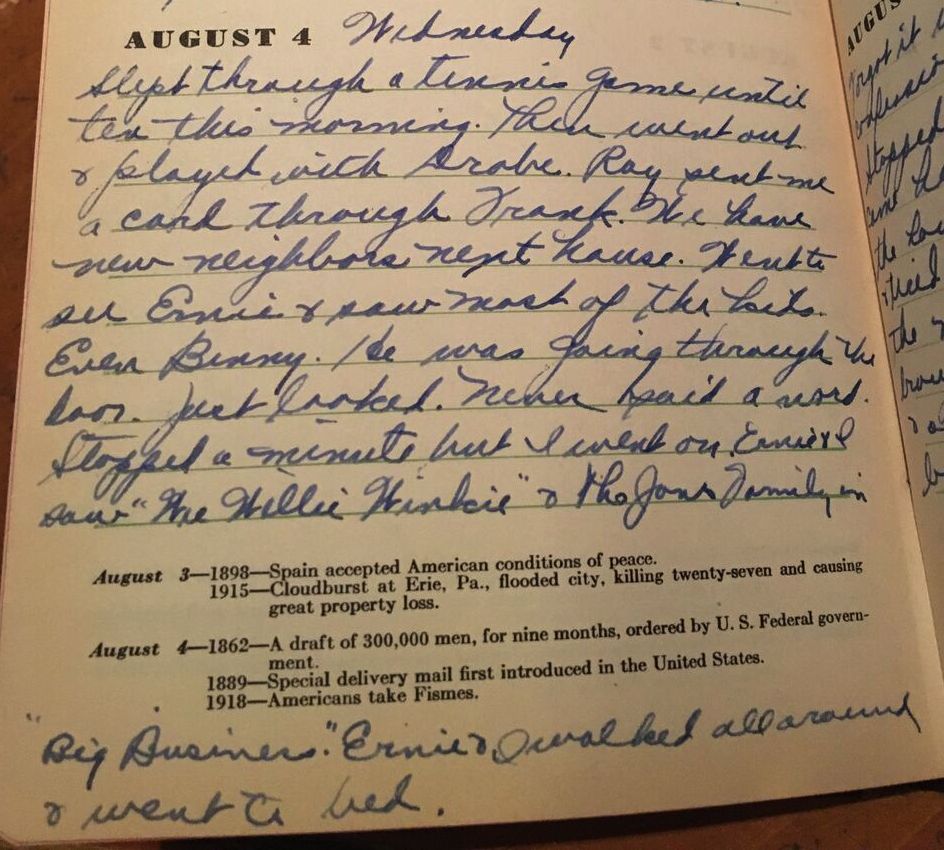 AUGUST 4 Wednesday
Slept through a tennis game until
ten this morning. Then went out
& played with Drobe. Ray sent me
a card through Frank. We have
new neighbors next house. Went to
see Ernie & saw most of the kids.
Even Binny. He was going through the
door. Just looked. Never said a word.
Stopped a minute but I went on. Ernie & I
saw "Wee Willie Winkie" & the Jones Family in
August 3—1898—Spain accepted American conditions of peace.
1915—Cloudburst at Erie, Pa., flooded city, killing twenty-seven and causing
great property loss.
August 4—1862—A draft of 300,000 men, for nine months, ordered by U. S. Federal govern-
ment.
1889—Special delivery mail first introduced in the United States.
1918—Americans take Fismes.
"Big Business." Ernie & I walked all around
& went to bed.
AUGUS
Forgot it
Stopped
came
the
tried
the